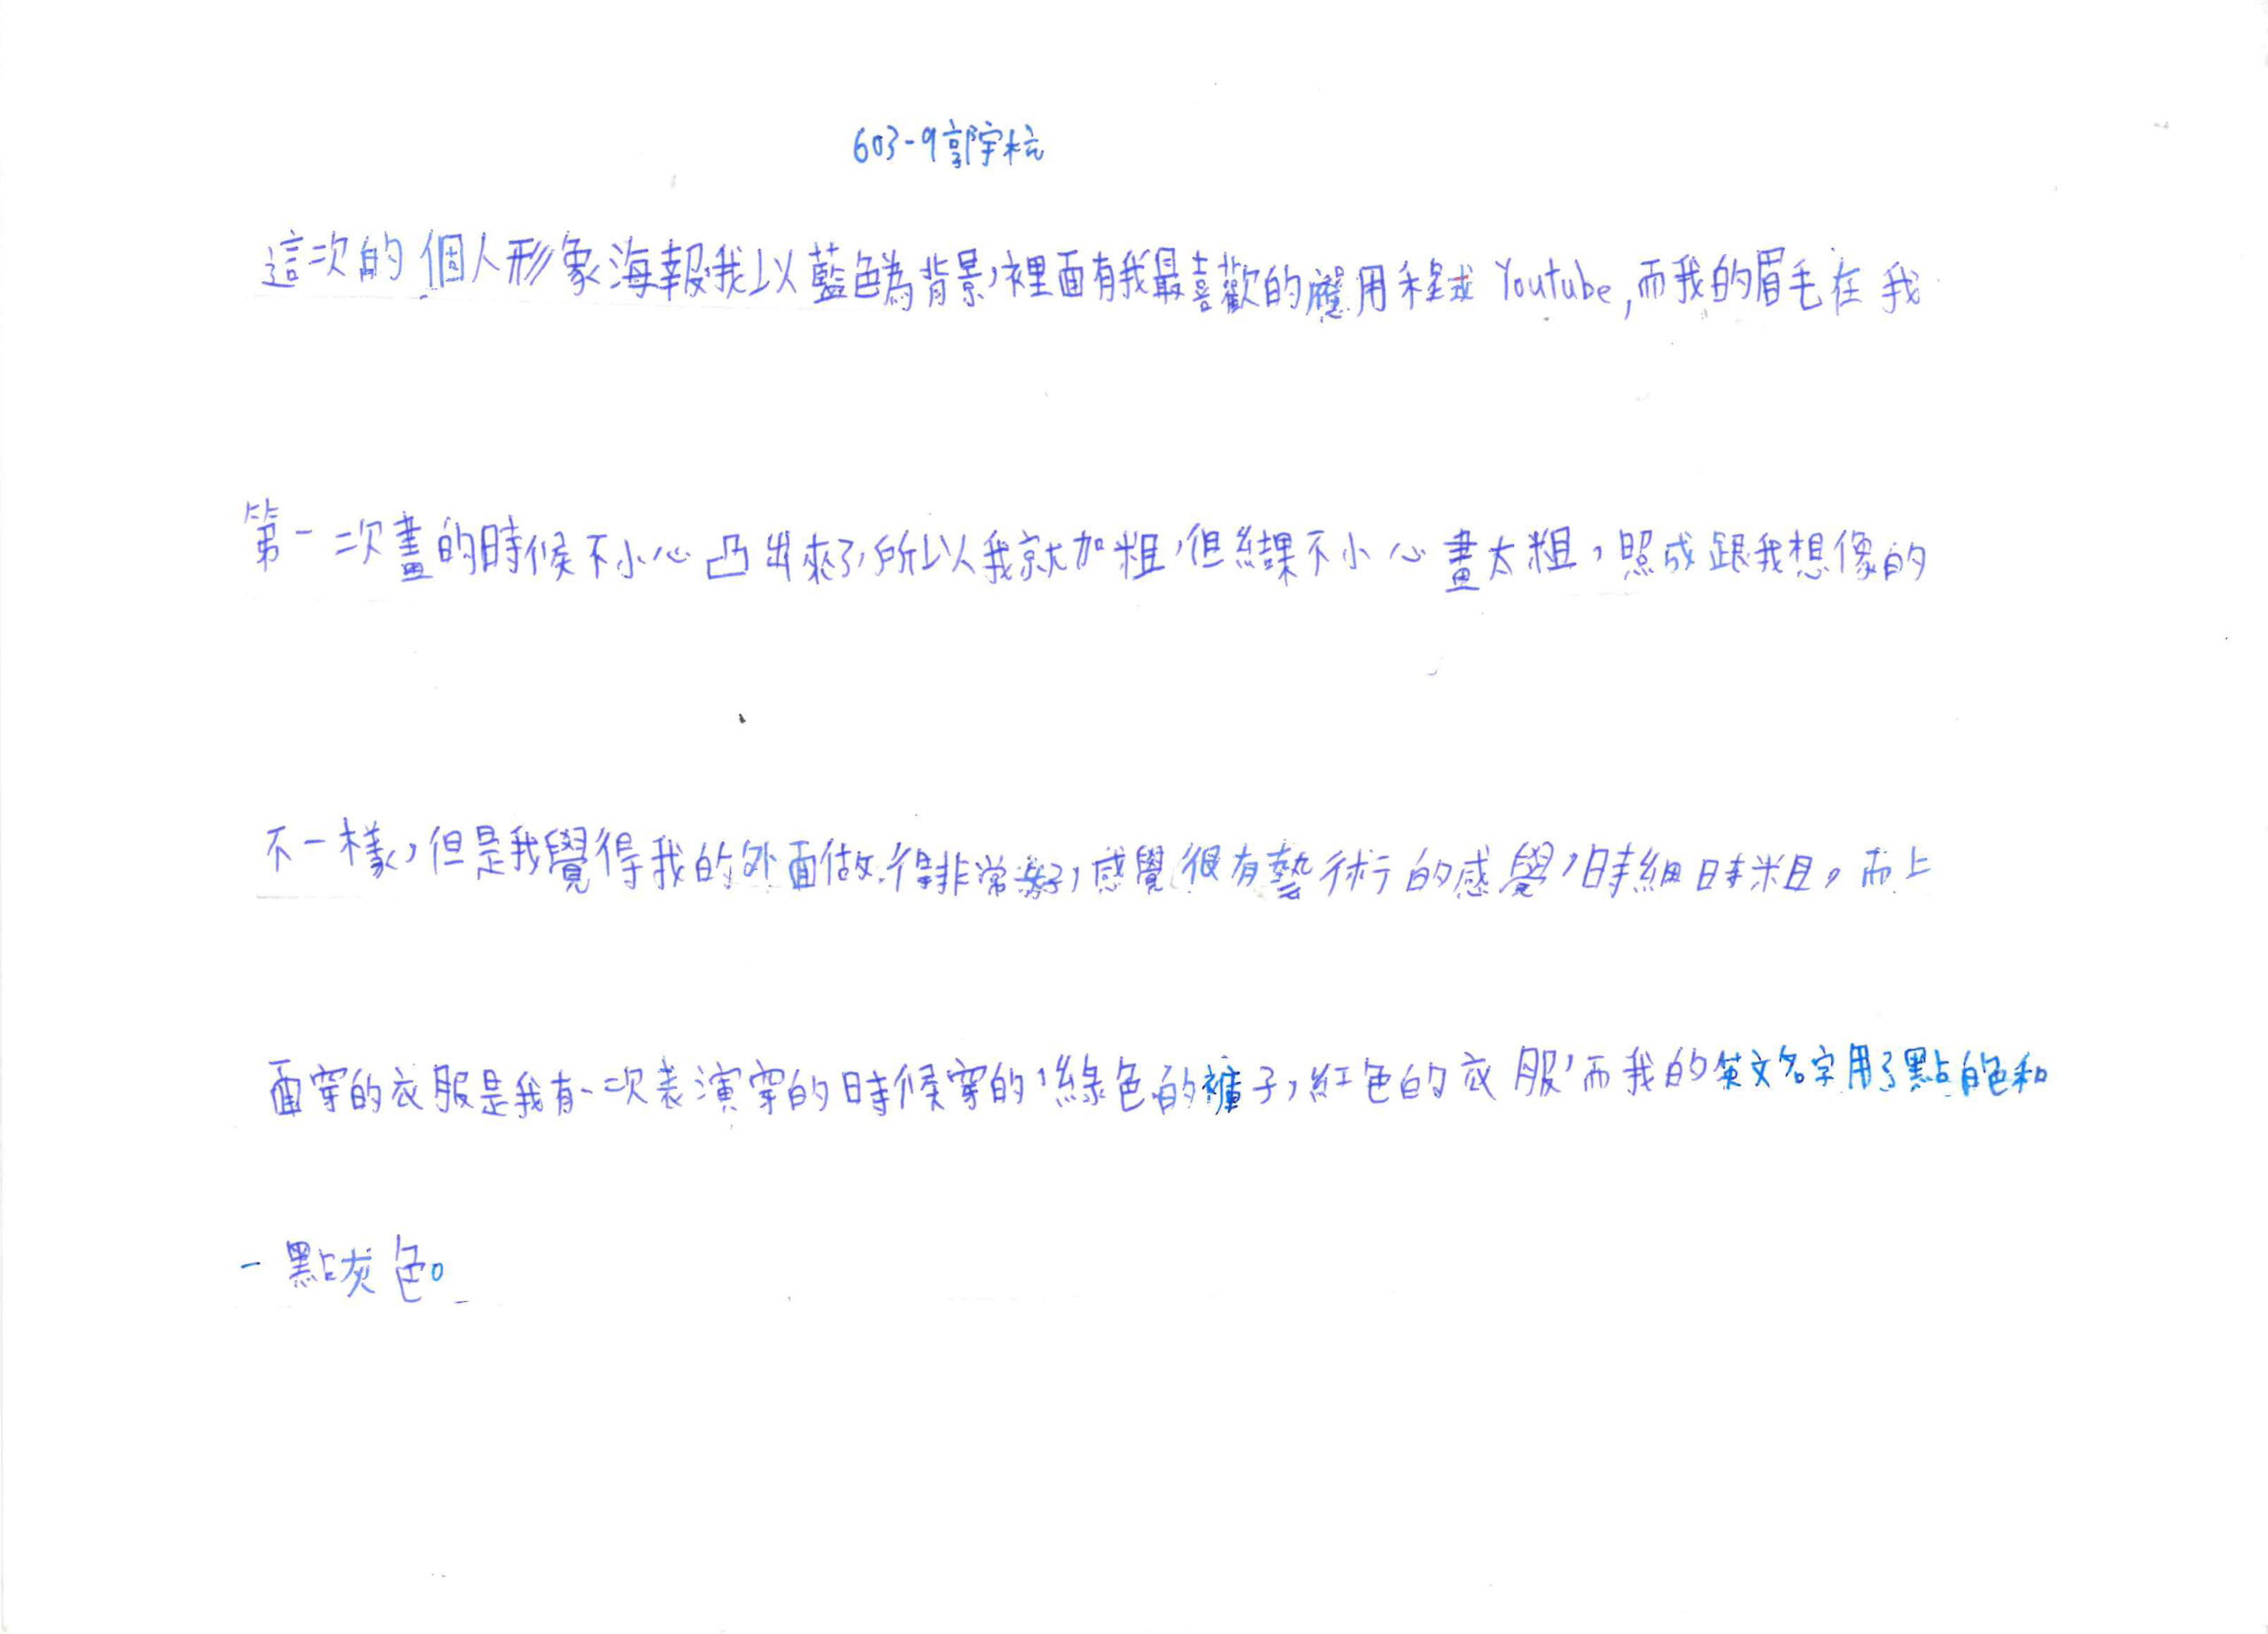 603-9郭宇杭
這次的個人形象海報,我以藍色為背景,裡面有我最喜歡的應用程式Youtube,而我的眉毛在我
第一次畫的時候不小心凸出來了,所以我就加粗,但結果不小心畫太粗,照成跟我想像的
不一樣,但是我覺得我的外面做得非常好,感覺很有藝術的感覺,時細時粗,而上
面穿的衣服是我有一次表演穿的時候穿的,綠色的褲子,紅色的衣服,而我的英文名字用了點白色和
一點灰色。